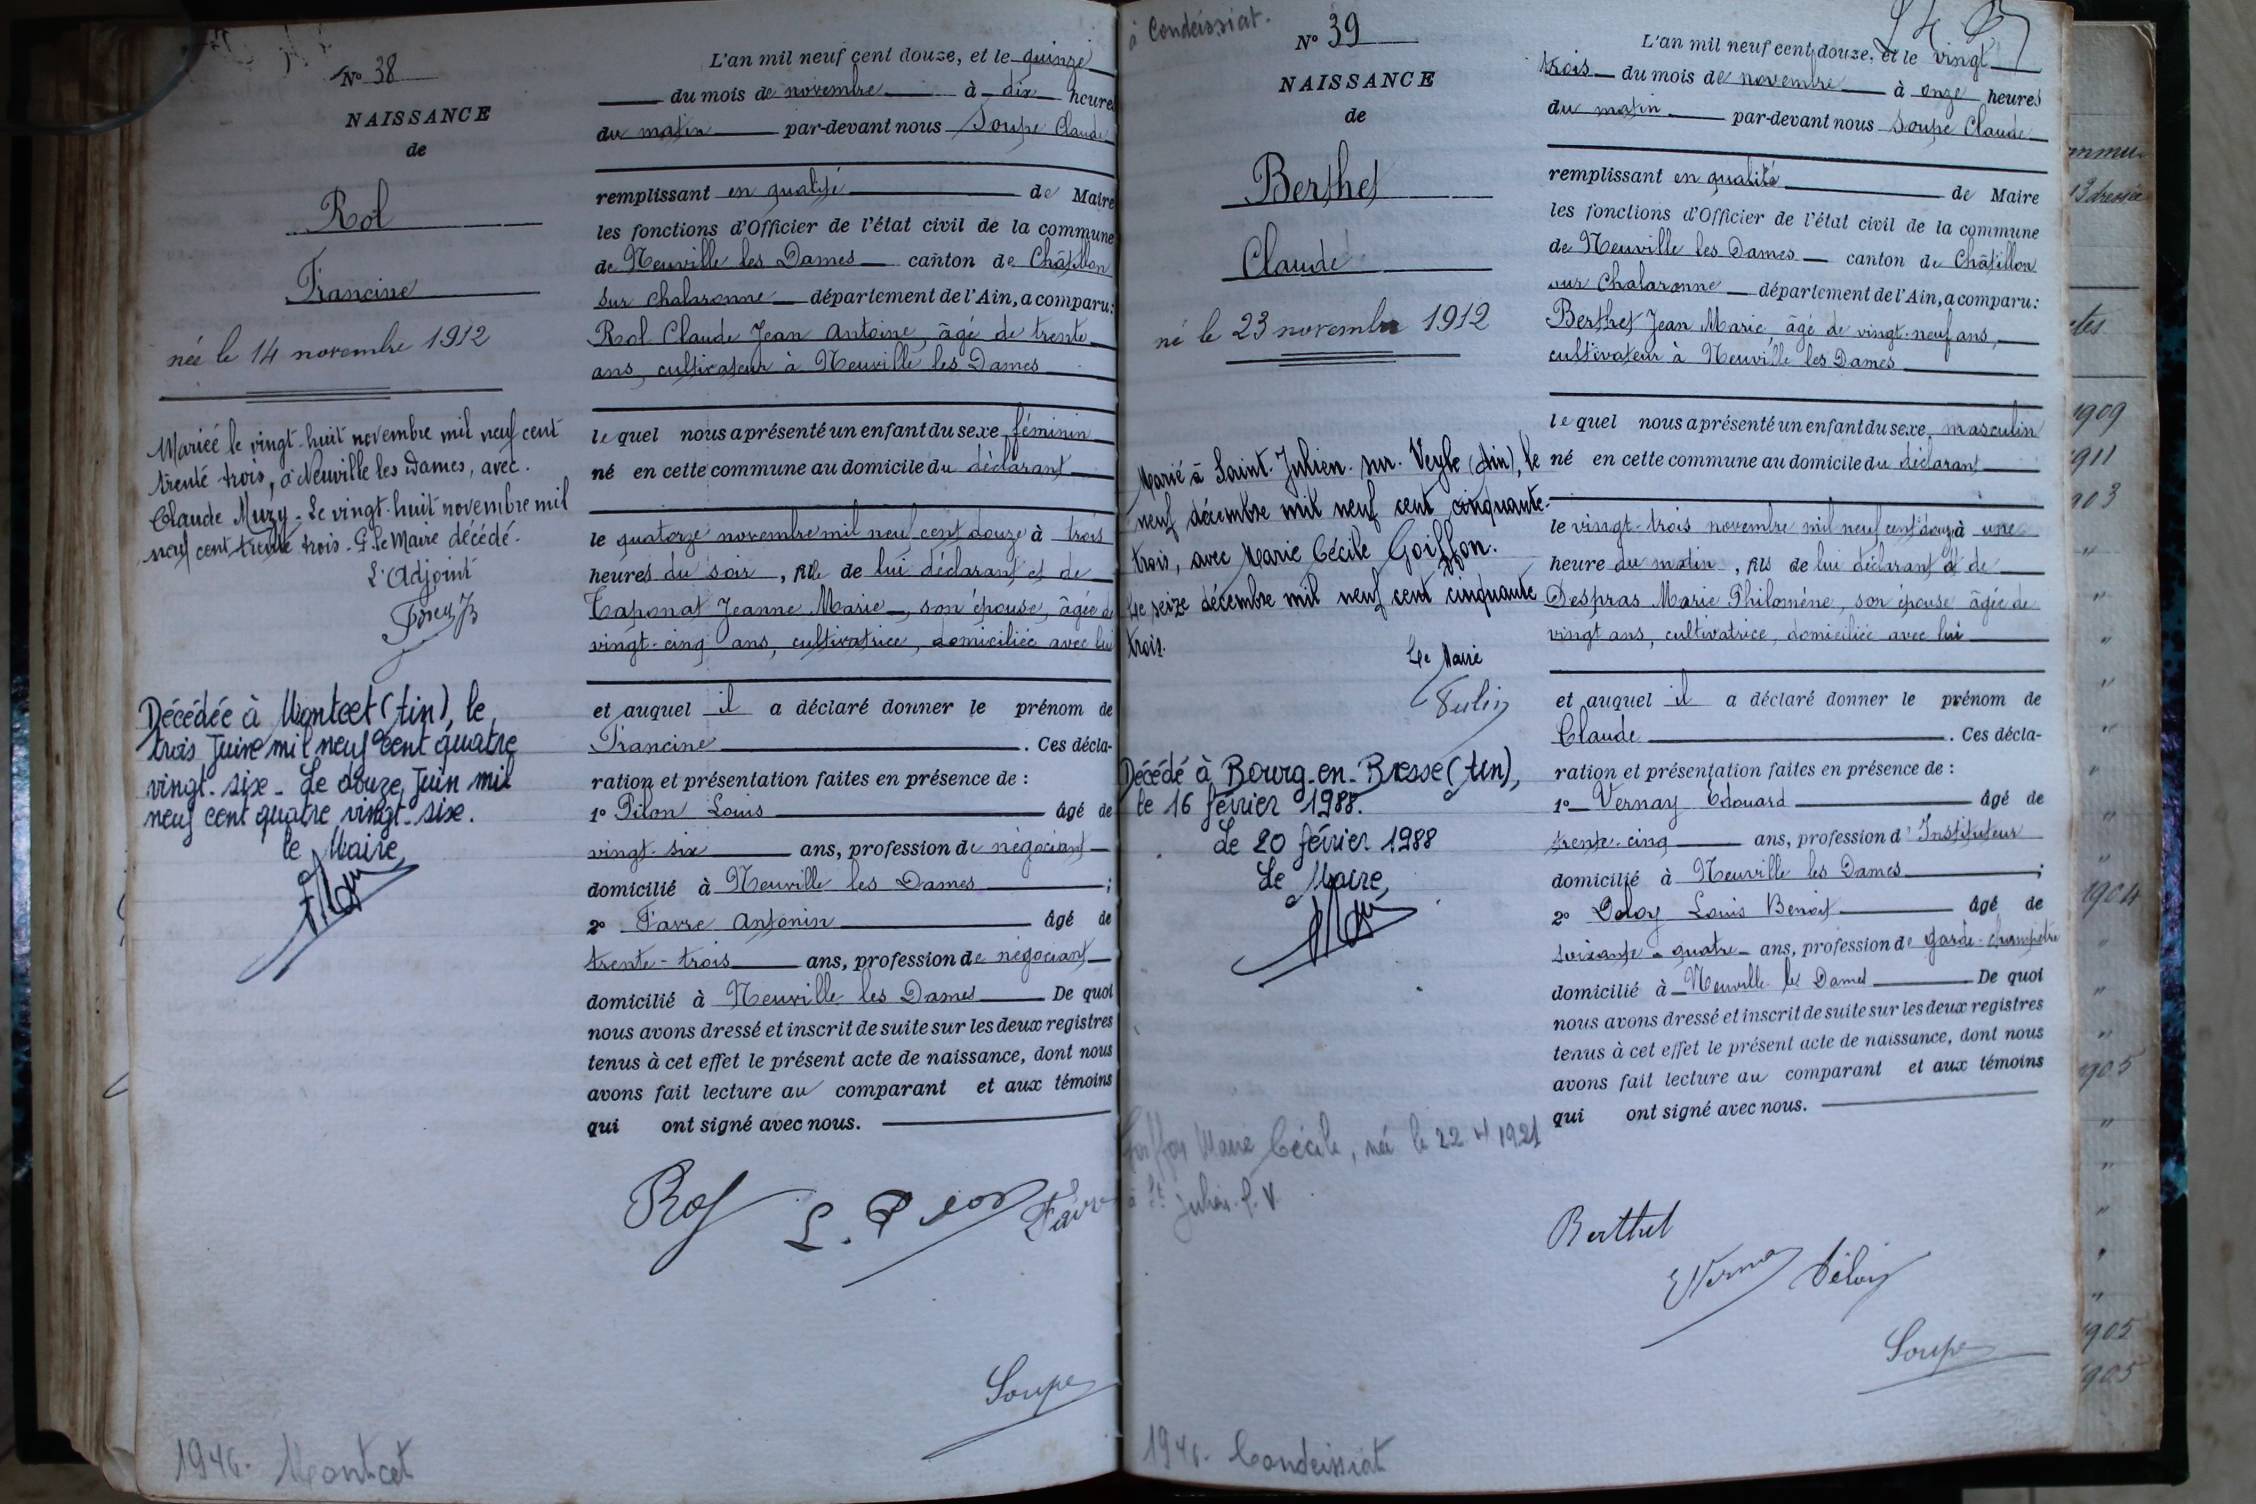 N° 38
NAISSANCE
de
Rol
Francine
née le 14 novembre 1912
Mariée le vingt-huit novembre mil neuf cent
trente trois, à Neuville les Dames, avec
Claude Muzy - Le vingt-huit novembre mil
neuf cent trente trois - P. le Maire décédé.
L'Adjoint
Décédée à Montcet (Ain), le
trois Juin mil neuf cent quatre
vingt-six - Le douze Juin mil
neuf cent quatre vingt-six.
le Maire,
1946 - Montcet
L'an mil neuf cent douze, et le quinze
du mois de novembre à dix heures
du matin par-devant nous Soupe Claude
remplissant en qualité de Maire
les fonctions d'Officier de l'état civil de la commune
de Neuville les Dames canton de Châtillon
sur Chalaronne département de l'Ain, a comparu:
Rol Claude Jean Antoine, âgé de trente
ans, cultivateur à Neuville les Dames
le quel nous a présenté un enfant du sexe féminin
né en cette commune au domicile du déclarant
le quatorze novembre mil neuf cent douze à trois
heures du soir, fille de lui déclarant et de
Taponat Jeanne Marie, son épouse, âgée de
vingt-cinq ans, cultivatrice, domiciliée avec lui
et auquel il a déclaré donner le prénom de
Francine. Ces décla-
ration et présentation faites en présence de :
1° Pilon Louis âgé de
vingt-six ans, profession de négociant
domicilié à Neuville les Dames ;
2° Favre Antonin âgé de
trente-trois ans, profession de négociant
domicilié à Neuville les Dames De quoi
nous avons dressé et inscrit de suite sur les deux registres
tenus à cet effet le présent acte de naissance, dont nous
avons fait lecture au comparant et aux témoins
qui ont signé avec nous.
Rol L. Pilon Favre
Soupe
à Condeissiat.
N° 39
NAISSANCE
de
Berthet
Claude
né le 23 novembre 1912
Marié à Saint-Julien-sur-Veyle (Ain), le
neuf décembre mil neuf cent cinquante-
trois, avec Marie Cécile Goiffon.
Le seize décembre mil neuf cent cinquante
trois.
Le Maire
Décédé à Bourg-en-Bresse (Ain),
le 16 février 1988.
Le 20 février 1988
Le Maire,
Goiffon Marie Cécile, née le 22 4 1921
à St Julien s. V.
1946 - Condeissiat
L'an mil neuf cent douze, et le vingt
trois du mois de novembre à onze heures
du matin par-devant nous Soupe Claude
remplissant en qualité de Maire
les fonctions d'Officier de l'état civil de la commune
de Neuville les Dames canton de Châtillon
sur Chalaronne département de l'Ain, a comparu:
Berthet Jean Marie, âgé de vingt-neuf ans,
cultivateur à Neuville les Dames
le quel nous a présenté un enfant du sexe masculin
né en cette commune au domicile du déclarant
le vingt-trois novembre mil neuf cent douze à une
heure du matin, fils de lui déclarant et de
Despras Marie Philomène, son épouse âgée de
vingt ans, cultivatrice, domiciliée avec lui
et auquel il a déclaré donner le prénom de
Claude. Ces décla-
ration et présentation faites en présence de :
1° Vernay Edouard âgé de
trente-cinq ans, profession d'Instituteur
domicilié à Neuville les Dames ;
2° Deloy Louis Benoit âgé de
soixante-quatre ans, profession de garde-champêtre
domicilié à Neuville les Dames De quoi
nous avons dressé et inscrit de suite sur les deux registres
tenus à cet effet le présent acte de naissance, dont nous
avons fait lecture au comparant et aux témoins
qui ont signé avec nous.
Berthet
EVernay Déloy
Soupe
1909
1911
1904
1905
1905
1905